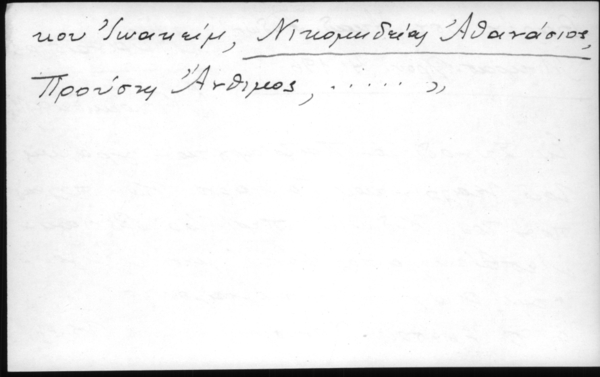 κου Ἰωακείμ, Νικομηδείας Ἀθανάσιος,
Προύσης Ἄνθιμος, ..... »